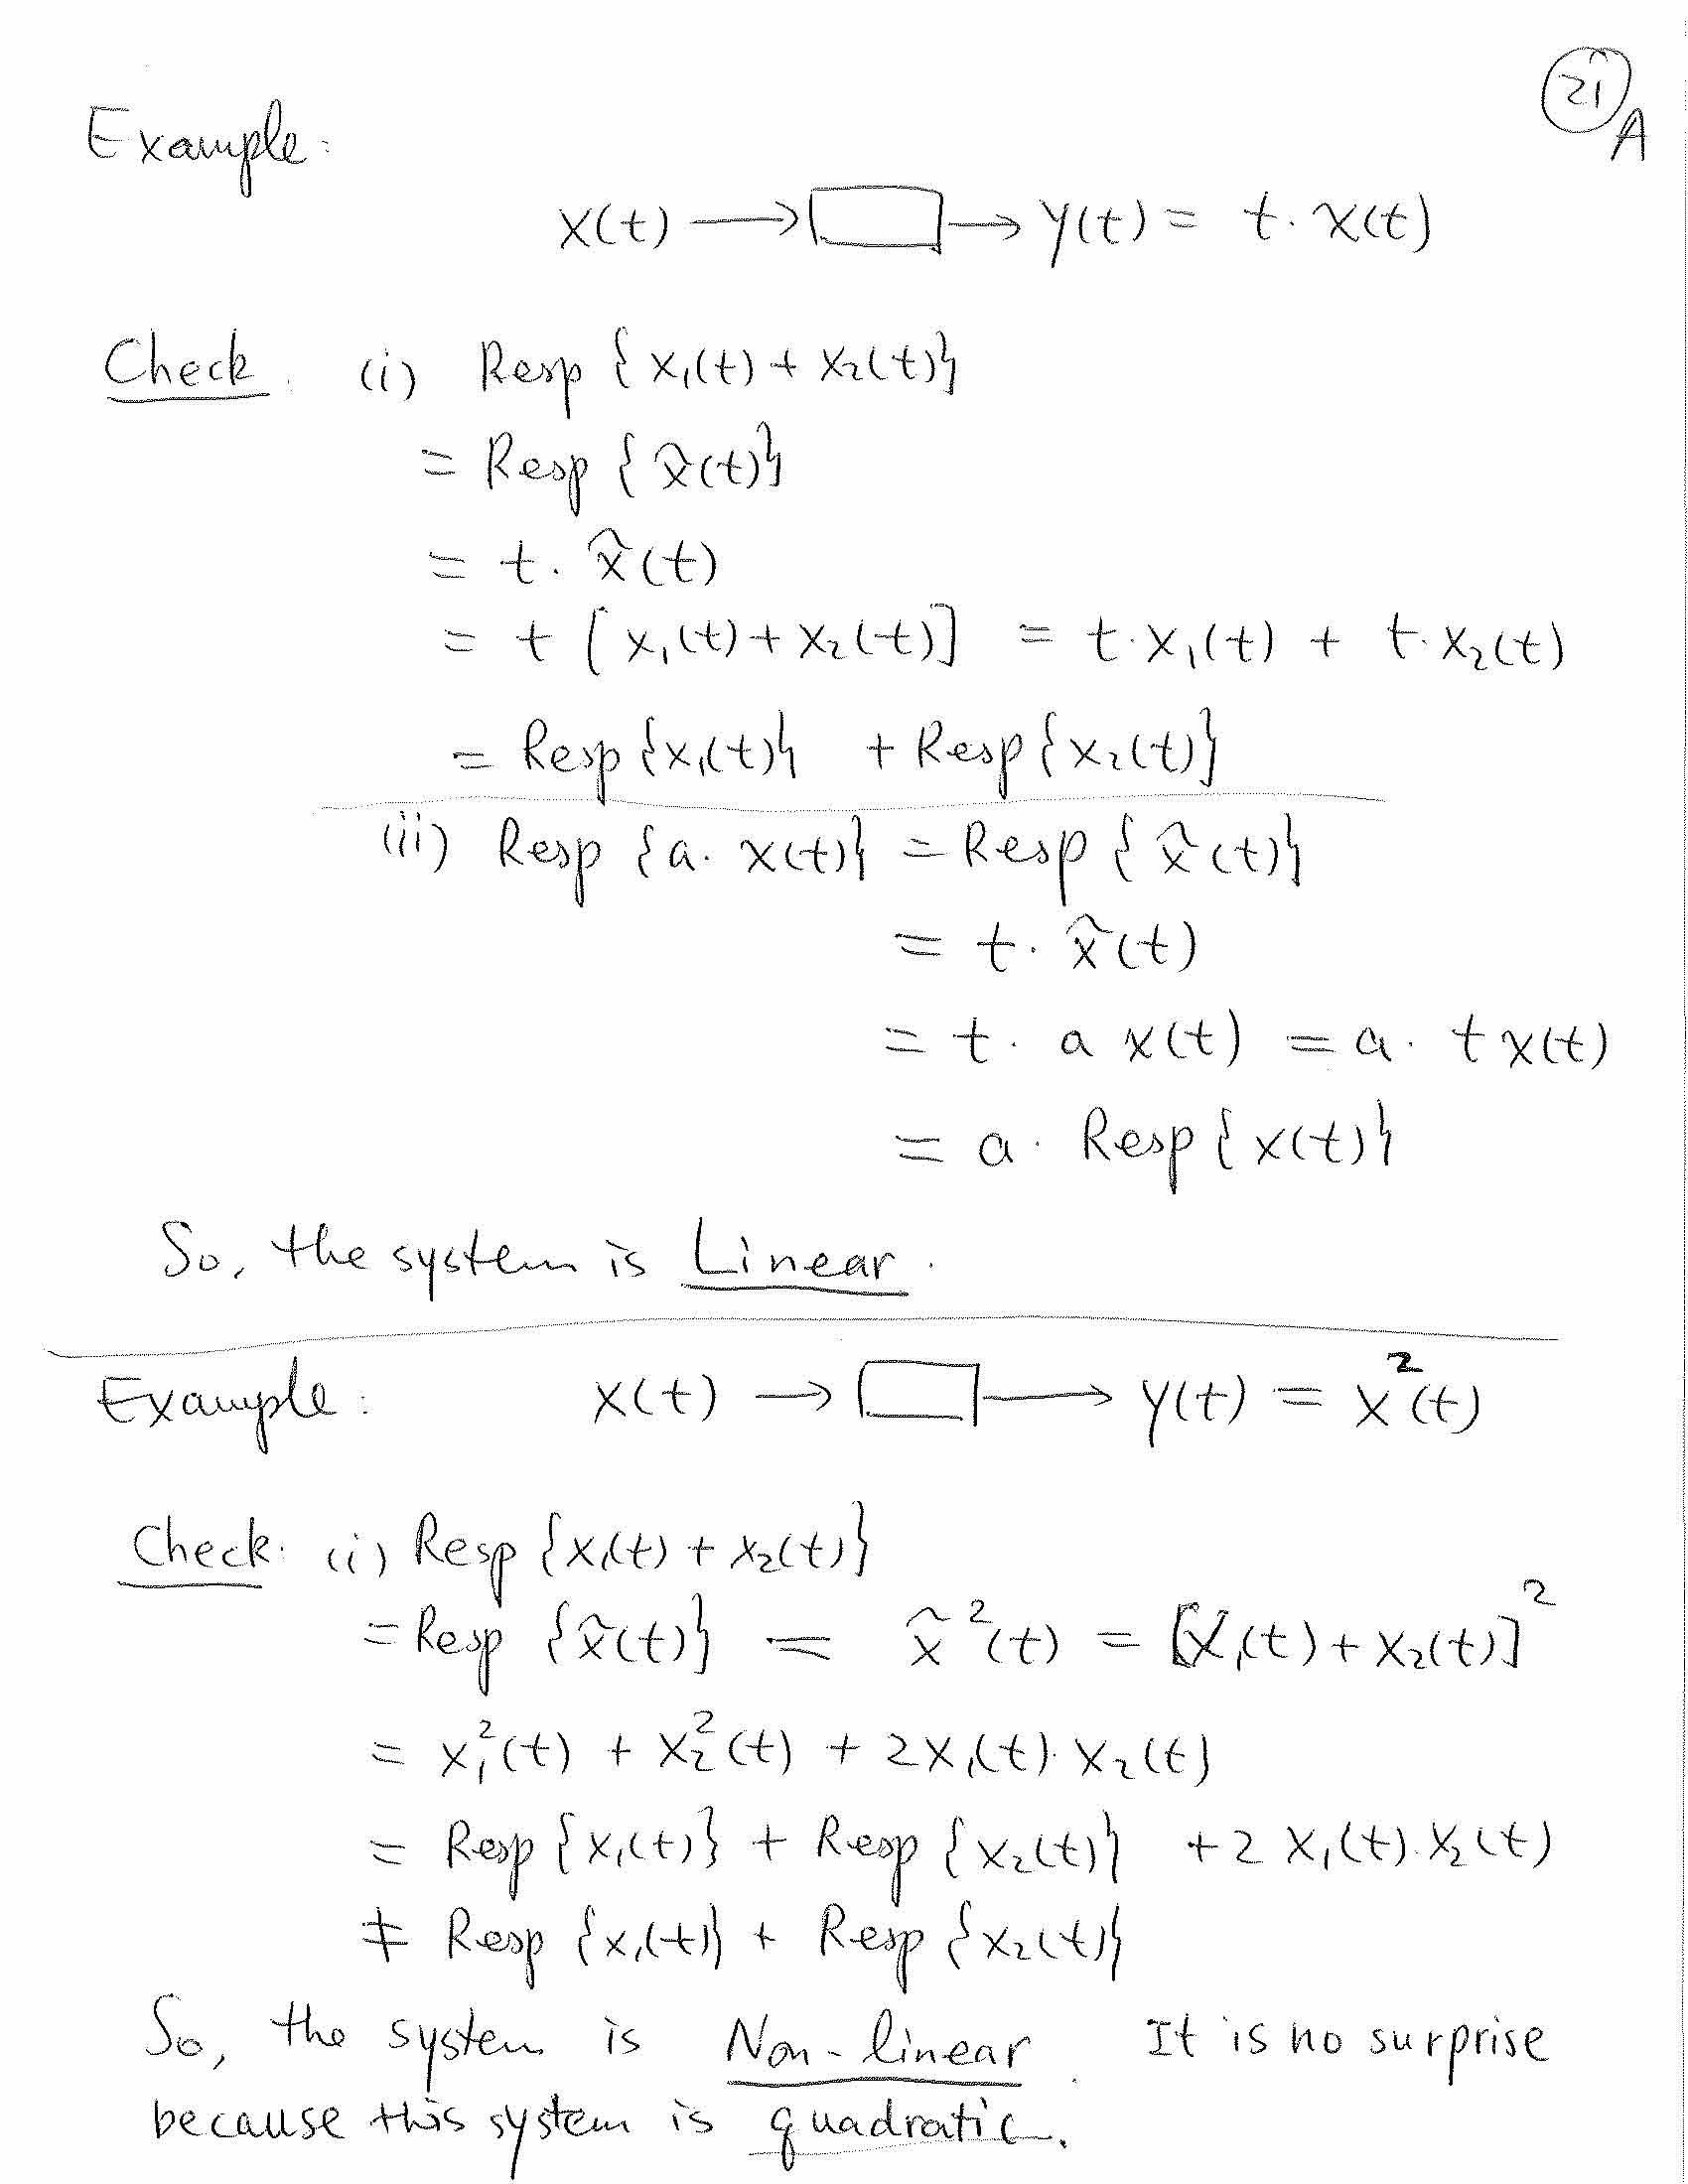 21
A
Example:
x(t) → □ → y(t) = t. x(t)
Check: (i) Resp {x₁(t) + x₂(t)}
= Resp {x̂(t)}
= t. x̂(t)
= t [x₁(t) + x₂(t)] = t.x₁(t) + t.x₂(t)
= Resp{x₁(t)} + Resp{x₂(t)}
(ii) Resp {a. x(t)} = Resp {x̂(t)}
= t. x̂(t)
= t. a x(t) = a. t x(t)
= a. Resp{x(t)}
So, the system is Linear.
Example: x(t) → □ → y(t) = x²(t)
Check: (i) Resp {x₁(t) + x₂(t)}
= Resp {x̂(t)} = x̂²(t) = [x₁(t) + x₂(t)]²
= x₁²(t) + x₂²(t) + 2x₁(t). x₂(t)
= Resp {x₁(t)} + Resp {x₂(t)} + 2 x₁(t). x₂(t)
≠ Resp {x₁(t)} + Resp {x₂(t)}
So, the system is Non-linear. It is no surprise
because this system is quadratic.